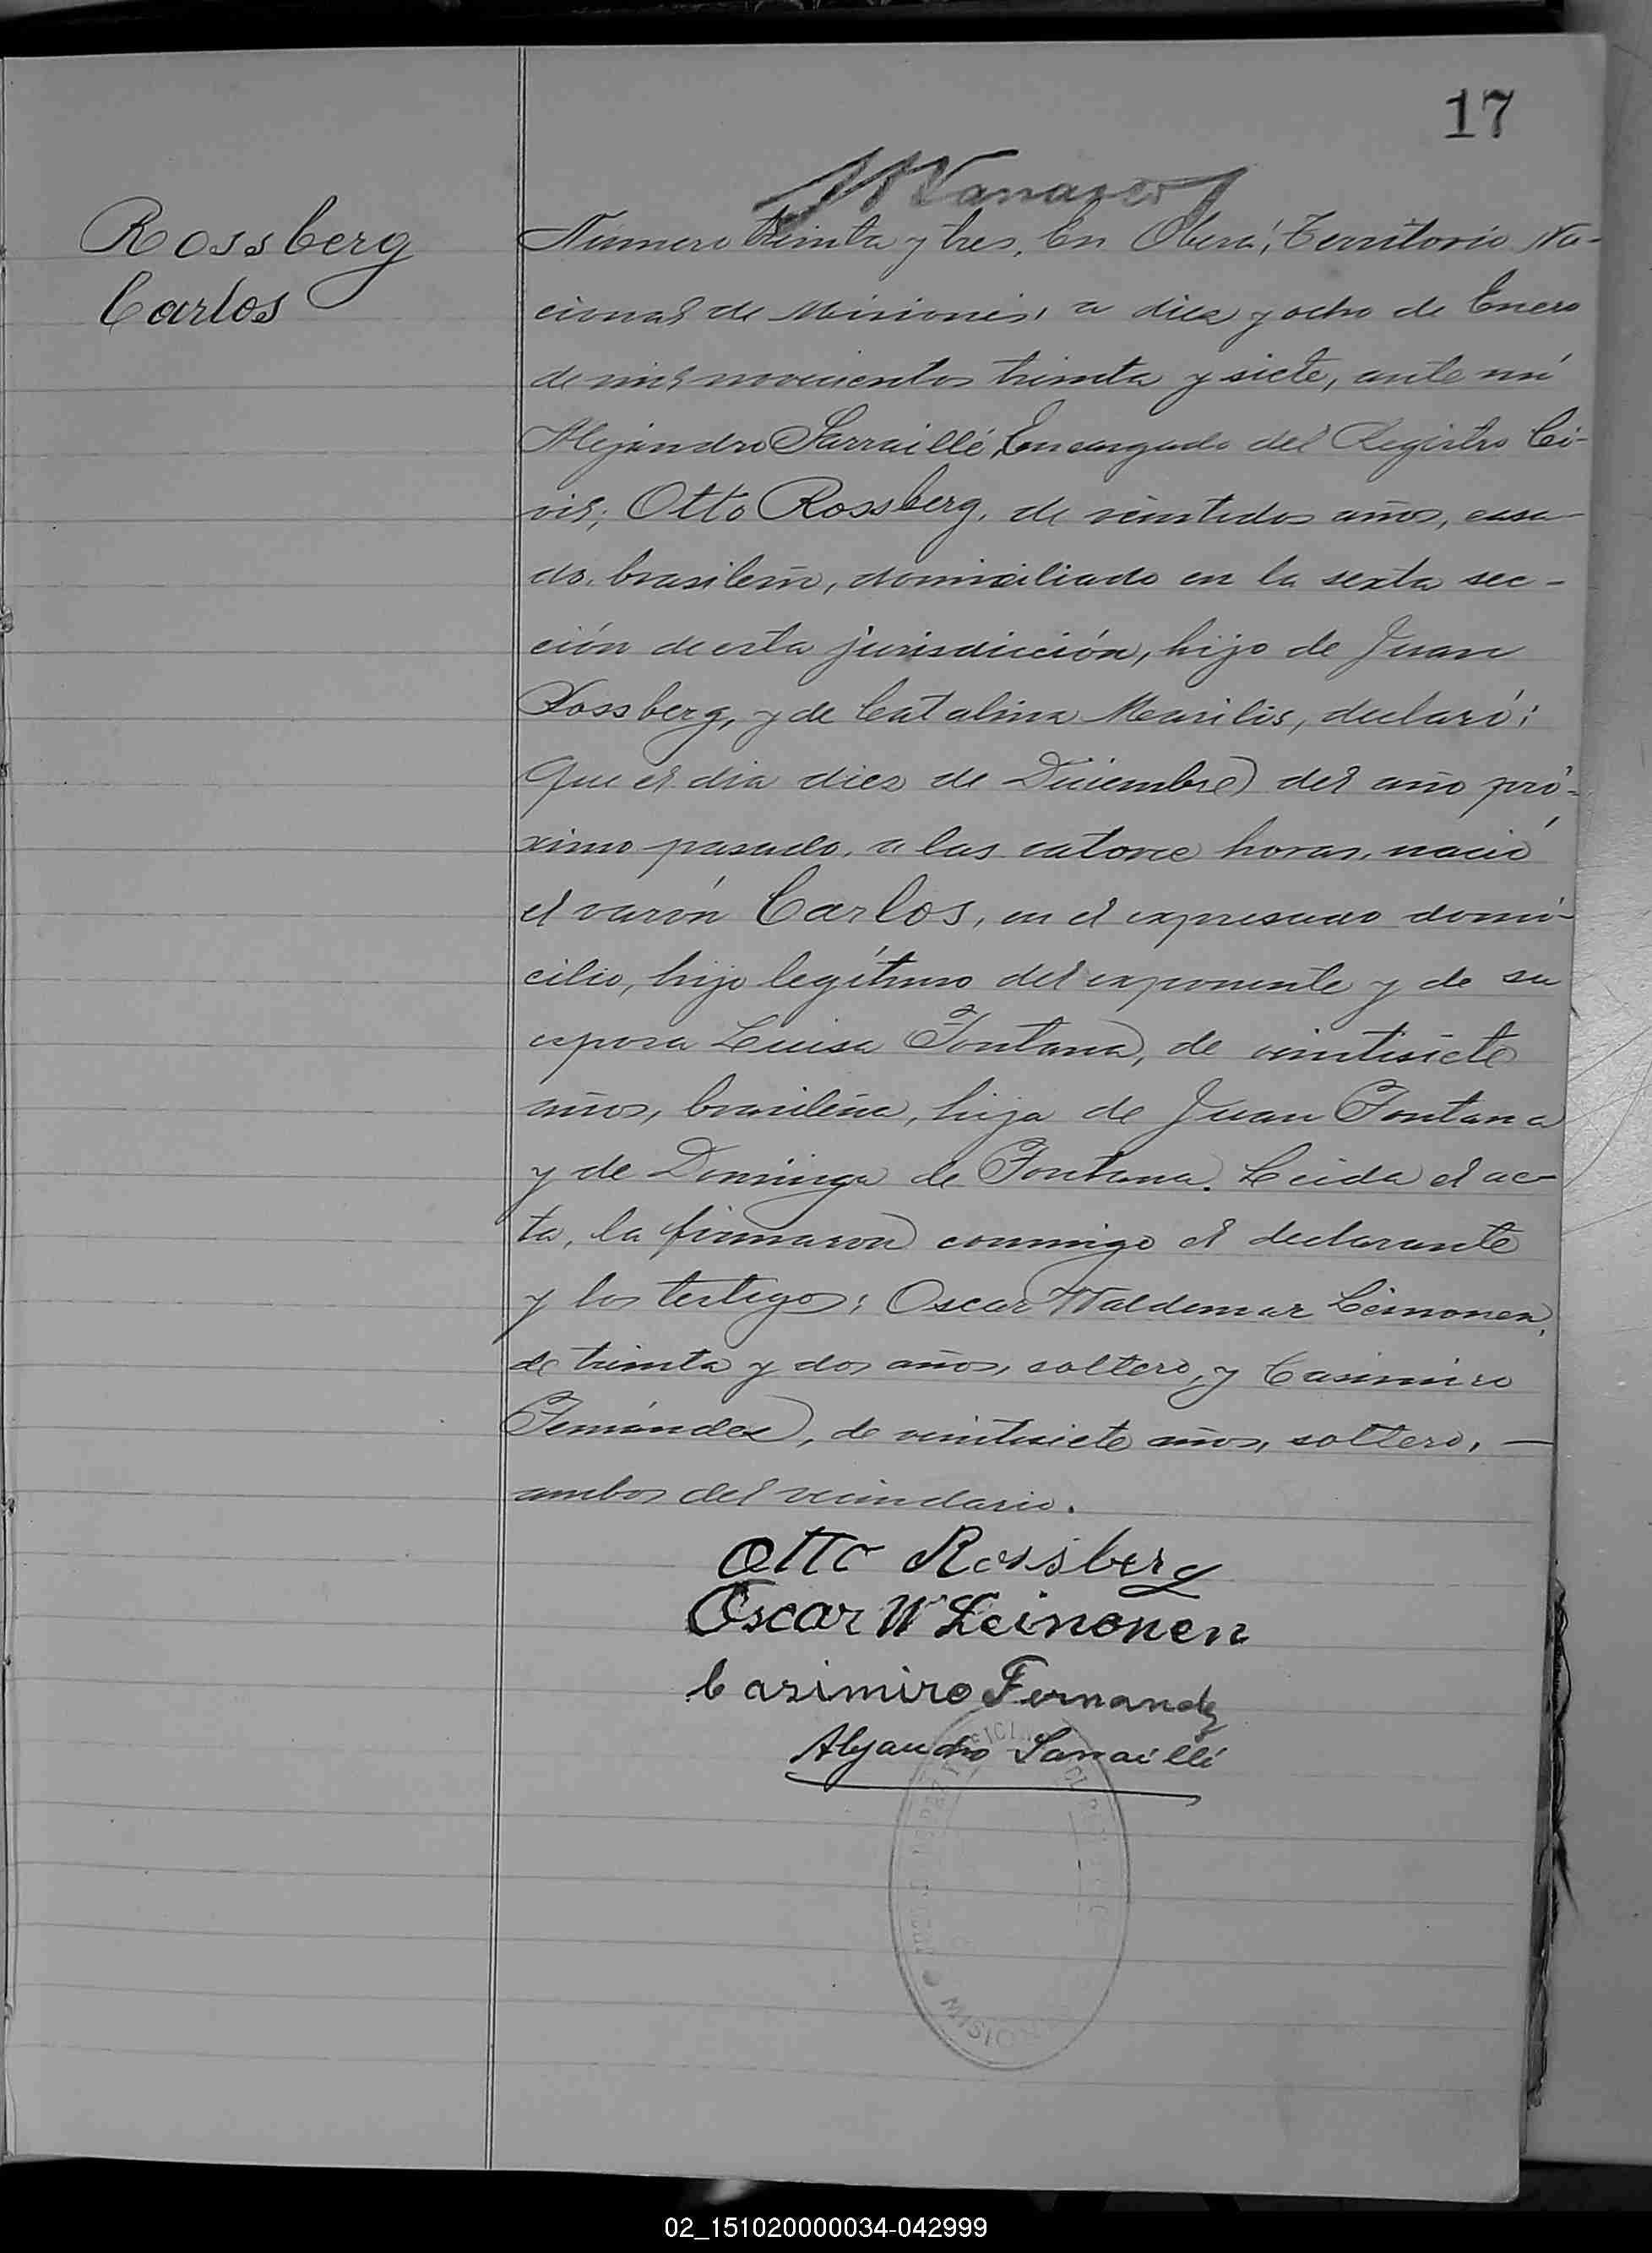 17
Rossberg
Carlos
Número treinta y tres. En Oberá, Territorio Na-
cional de Misiones, a diez y ocho de Enero
de mil novecientos treinta y siete, ante mí
Alejandro Sarraillé, Encargado del Registro Ci-
vil; Otto Rossberg, de veintidos años, casa-
do, brasileño, domiciliado en la sexta sec-
ción de esta jurisdicción, hijo de Juan
Rossberg, y de Catalina declaró:
Que el día diez de Diciembre del año pró-
ximo pasado, a las catorce horas, nació
el varón Carlos, en el expresado domi-
cilio, hijo legítimo del exponente y de su
esposa Luisa Fontana, de veintisiete
años, brasileña, hija de Juan Fontana
y de Dominga de Fontana. Leida el ac-
ta, la firmaron conmigo el declarante
y los testigos: Oscar Waldemar Leinonen,
de treinta y dos años, soltero, y Casimiro
Fernández, de veintisiete años, soltero, —
ambos del vecindario.
Otto Rossberg
Oscar W Leinonen
Casimiro Fernandz
Alejandro Sarraillé
02_151020000034-042999